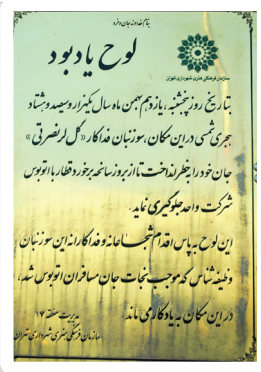 بنام خداوند جان و خرد
لوح یادبود
سازمان فرهنگی هنری شهرداری تهران
بتاریخ روز پنجشنبه، یازدهم بهمن ماه سال یکهزار و سیصد و هشتاد
هجری شمسی در این مکان، سوزنبان فداکار «گل لر نصرتی»
جان خود را بخطر انداخت تا از بروز سانحه برخورد قطار با اتوبوس
شرکت واحد جلوگیری نماید.
این لوح به پاس اقدام شجاعانه و فداکارانه این سوزنبان
وظیفه شناس که موجب نجات جان مسافران اتوبوس شد،
در این مکان به یادگار می ماند.
مدیریت منطقه ۱۷
سازمان فرهنگی هنری شهرداری تهران